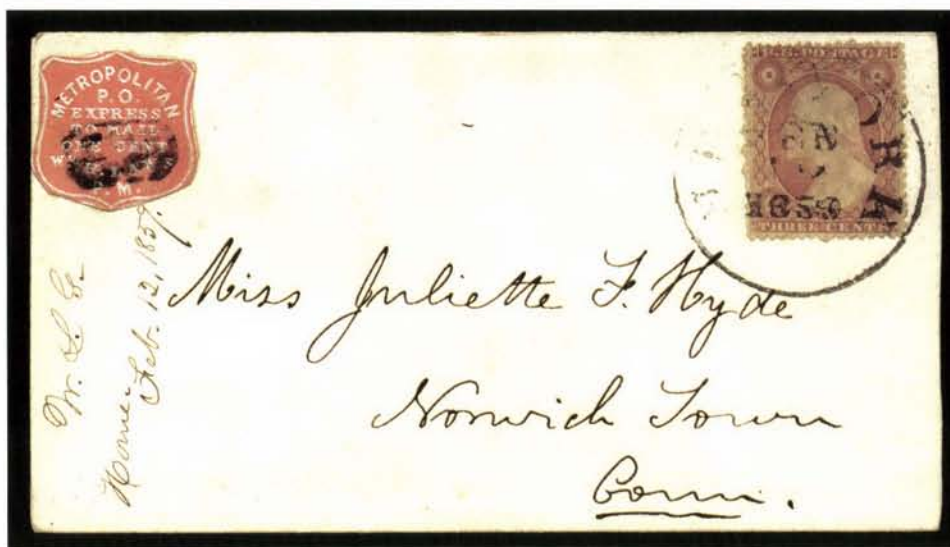 METROPOLITAN
P.O.
EXPRESS
TO MAIL
ONE CENT
P.M.
U.S. POSTAGE
THREE CENTS
1859
W. L. C.
Home
Feb. 12, 1859.
Miss Juliette F. Hyde
Norwich Town
Conn.